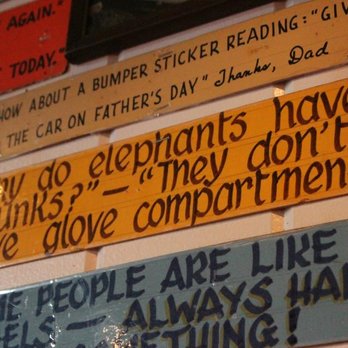 AGAIN."
TODAY."
HOW ABOUT A BUMPER STICKER READING: "GIV
THE CAR ON FATHER'S DAY" Thanks, Dad
do elephants have
UNKS?"—"They don't
ve glove compartmen
PEOPLE ARE LIKE
ELS — ALWAYS HA
ETHING!